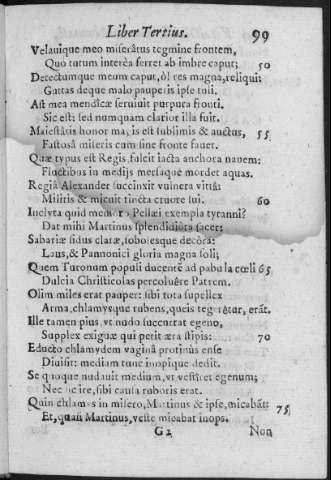 Liber Tertius. 99
Velauique meo miserâtus tegmine frontem,
Quò tutum interèa ferret ab imbre caput; 50
Detectumque meum caput, ò! res magna, reliqui:
Guttas deque malo pauperis ipse tuli.
Ast mea mendicæ seruiuit purpura fronti,
Sic est: sed numquam clarior illa fuit.
Maiestâtis honor magis est sublimis & auctus, 55
Fastosâ miseris cum sine fronte fauet.
Quæ typus est Regis, falcit iacta anchora nauem:
Fluctibus in medijs mersaque mordet aquas.
Regiâ Alexander succinxit vulnera vittâ:
Militis & micuit tincta cruore sui. 60
Inclyta quid memoro Pellæi exempla tyranni?
Dat mihi Martinus splendidiôra sacer:
Sabariæ sidus claræ, sobolesque decôra:
Laus, & Pannonici gloria magna soli;
Quem Turonum populi ducentè ad pabula cœli 65
Dulcia Christicolas percoluêre Patrem.
Olim miles erat pauper: sibi tota supellex
Arma, chlamysque rubens, queis tegerêtur, erât.
Ille tamen pius, vt nudo succurrat egeno,
Supplex exiguæ qui petit æra stipis: 70
Educto chlamydem vaginâ protinùs ense
Diuisit: mediam tunc inopique dedit.
Se quoque nudauit medium, vt vestiret egenum;
Nec piguisse, sibi causa ruboris erat.
Quin chlamys in misero, Martinus & ipse, micabât: 75
Et, quasi Martinus, veste micabat inops.
G 2 Non